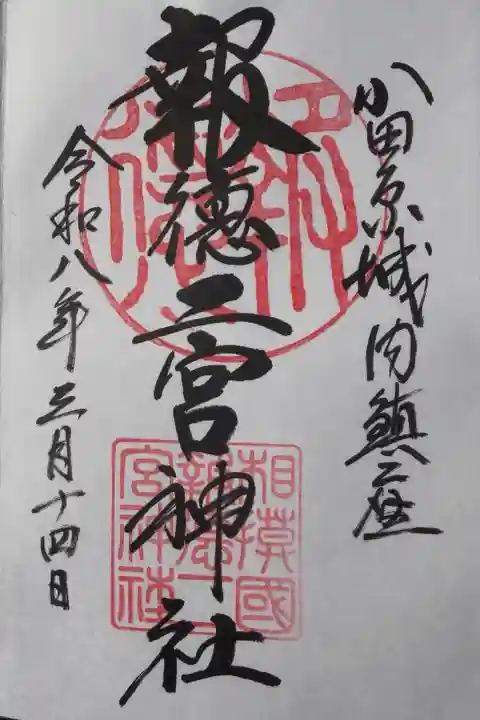 小田原城内鎮座
報徳二宮神社
相模國
報徳二
宮神社
令和八年三月十四日